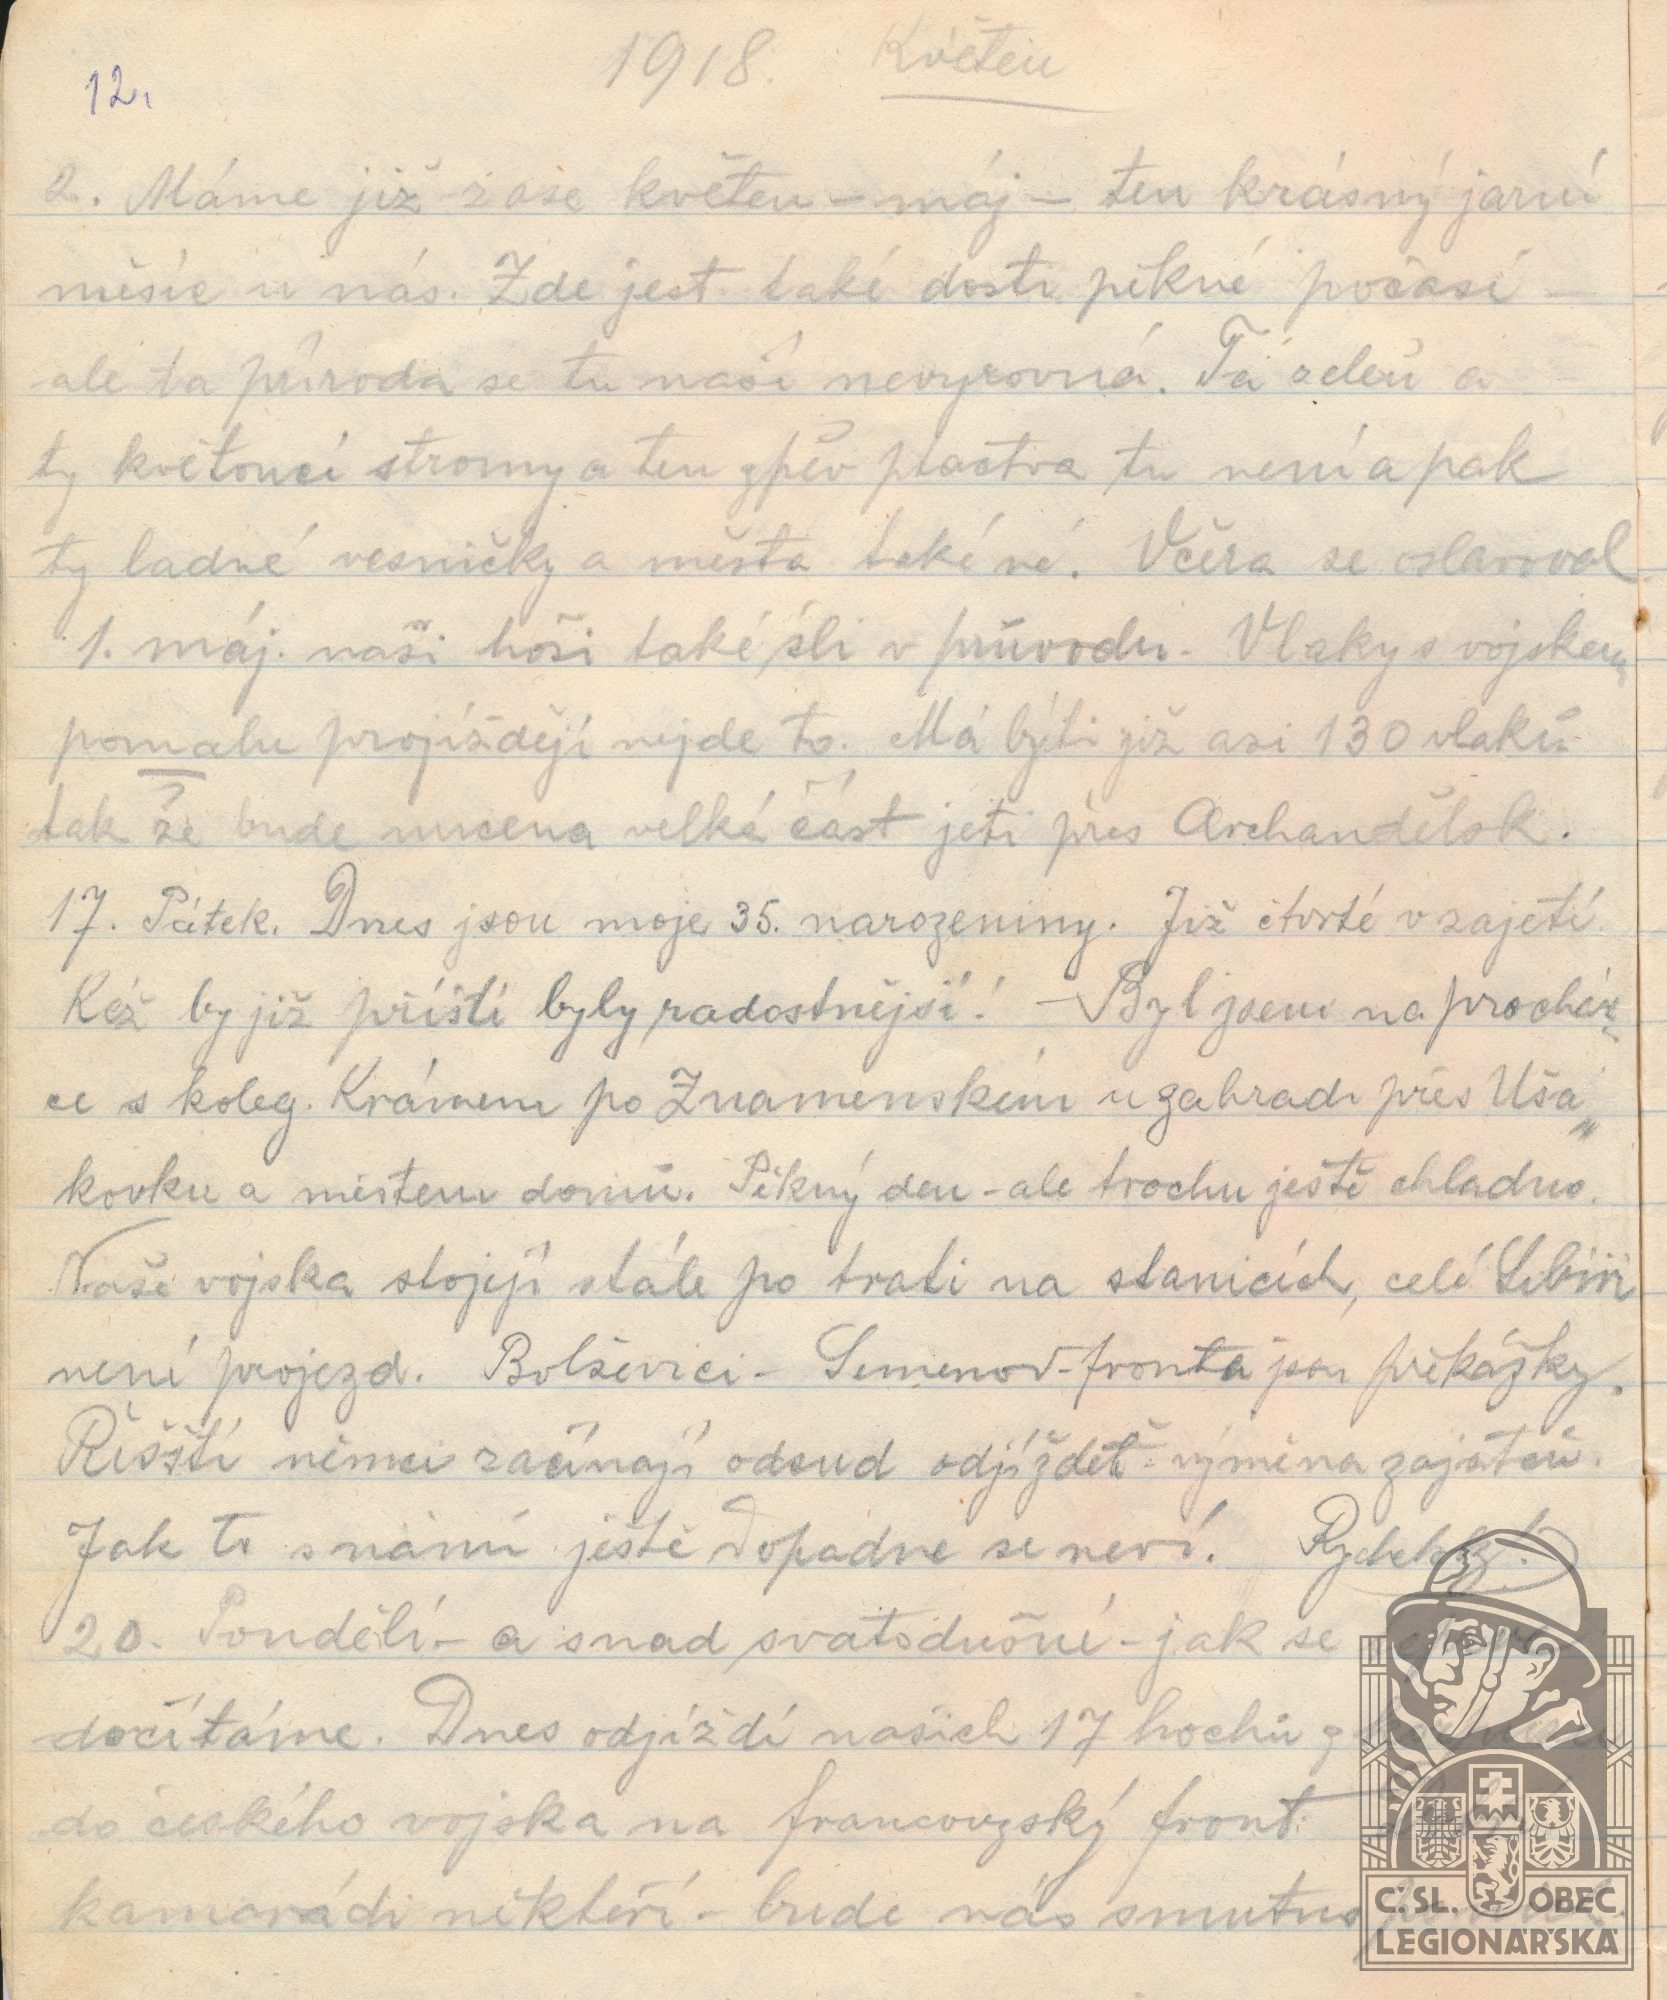 12.
1918. Květen
2. Máme již zase květen – máj – ten krásný jarní
měsíc u nás. Zde jest také dosti pěkné počasí –
ale ta příroda se tu naší nevyrovná. Ta zeleň a
ty kvetoucí stromy a ten zpěv ptactva tu není a pak
ty ladné vesničky a města také né. Včera se oslavoval
1. máj. naši hoši také šli v průvodu. Vlaky s vojskem
pomalu projíždějí nejde to. Má býti již asi 130 vlaků
tak že bude nucena velká část jeti přes Archandělsk.
17. Pátek. Dnes jsou moje 35. narozeniny. Již čtvrté v zajetí.
Kéž by již příští byly radostnější! – Byl jsem na procház„
ce s koleg. Krámem po Znamenském u zahradi přes Uša„
kovku a městem domů. Pěkný den – ale trochu ještě chladno.
Naše vojska stojejí stále po trati na stanicích, celé Sibiři
není projezd. Bolševici – Semenov-fronta jsou překážky.
Říšští němci začínají odsud odjíždet – výměna zajatců.
Jak to s námi ještě dopadne se neví.
20. Pondělí – a snad svatodušní – jak se
dočítáme. Dnes odjíždí našich 17 hochů z
do českého vojska na francouzský front.
kamarádi někteří – bude nás smutno
Č.SL. OBEC
LEGIONÁŘSKÁ